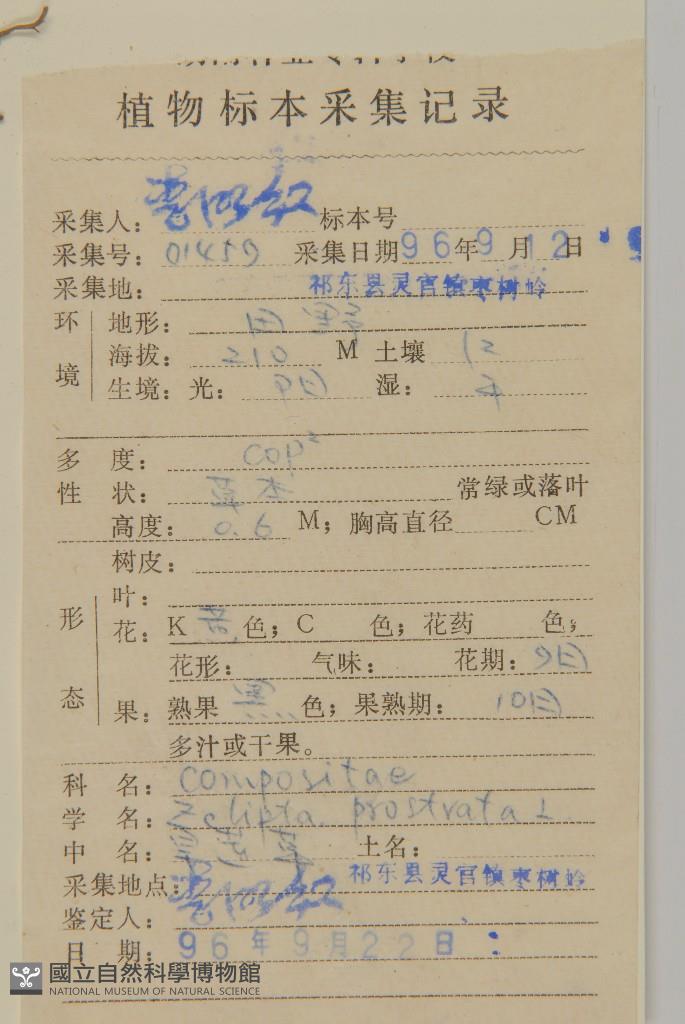 植物标本采集记录
采集人： 标本号
采集号：01459 采集日期96年9月12日
采集地： 祁东县灵官镇枣树岭
环境 地形：田野
海拔：210 M 土壤 红
生境：光：阳 湿：平
多度：cop²
性状：草本 常绿或落叶
高度：0.6 M；胸高直径 CM
树皮：
形态 叶：
花：K 黄 色；C 色；花药 色；
花形： 气味： 花期：9月
果：熟果 黑 色；果熟期：10月
多汁或干果。
科名：Compositae
学名：Eclipta prostrata L
中名： 土名：
采集地点： 祁东县灵官镇枣树岭
鉴定人：
日期：96年9月22日
國立自然科學博物館
NATIONAL MUSEUM OF NATURAL SCIENCE